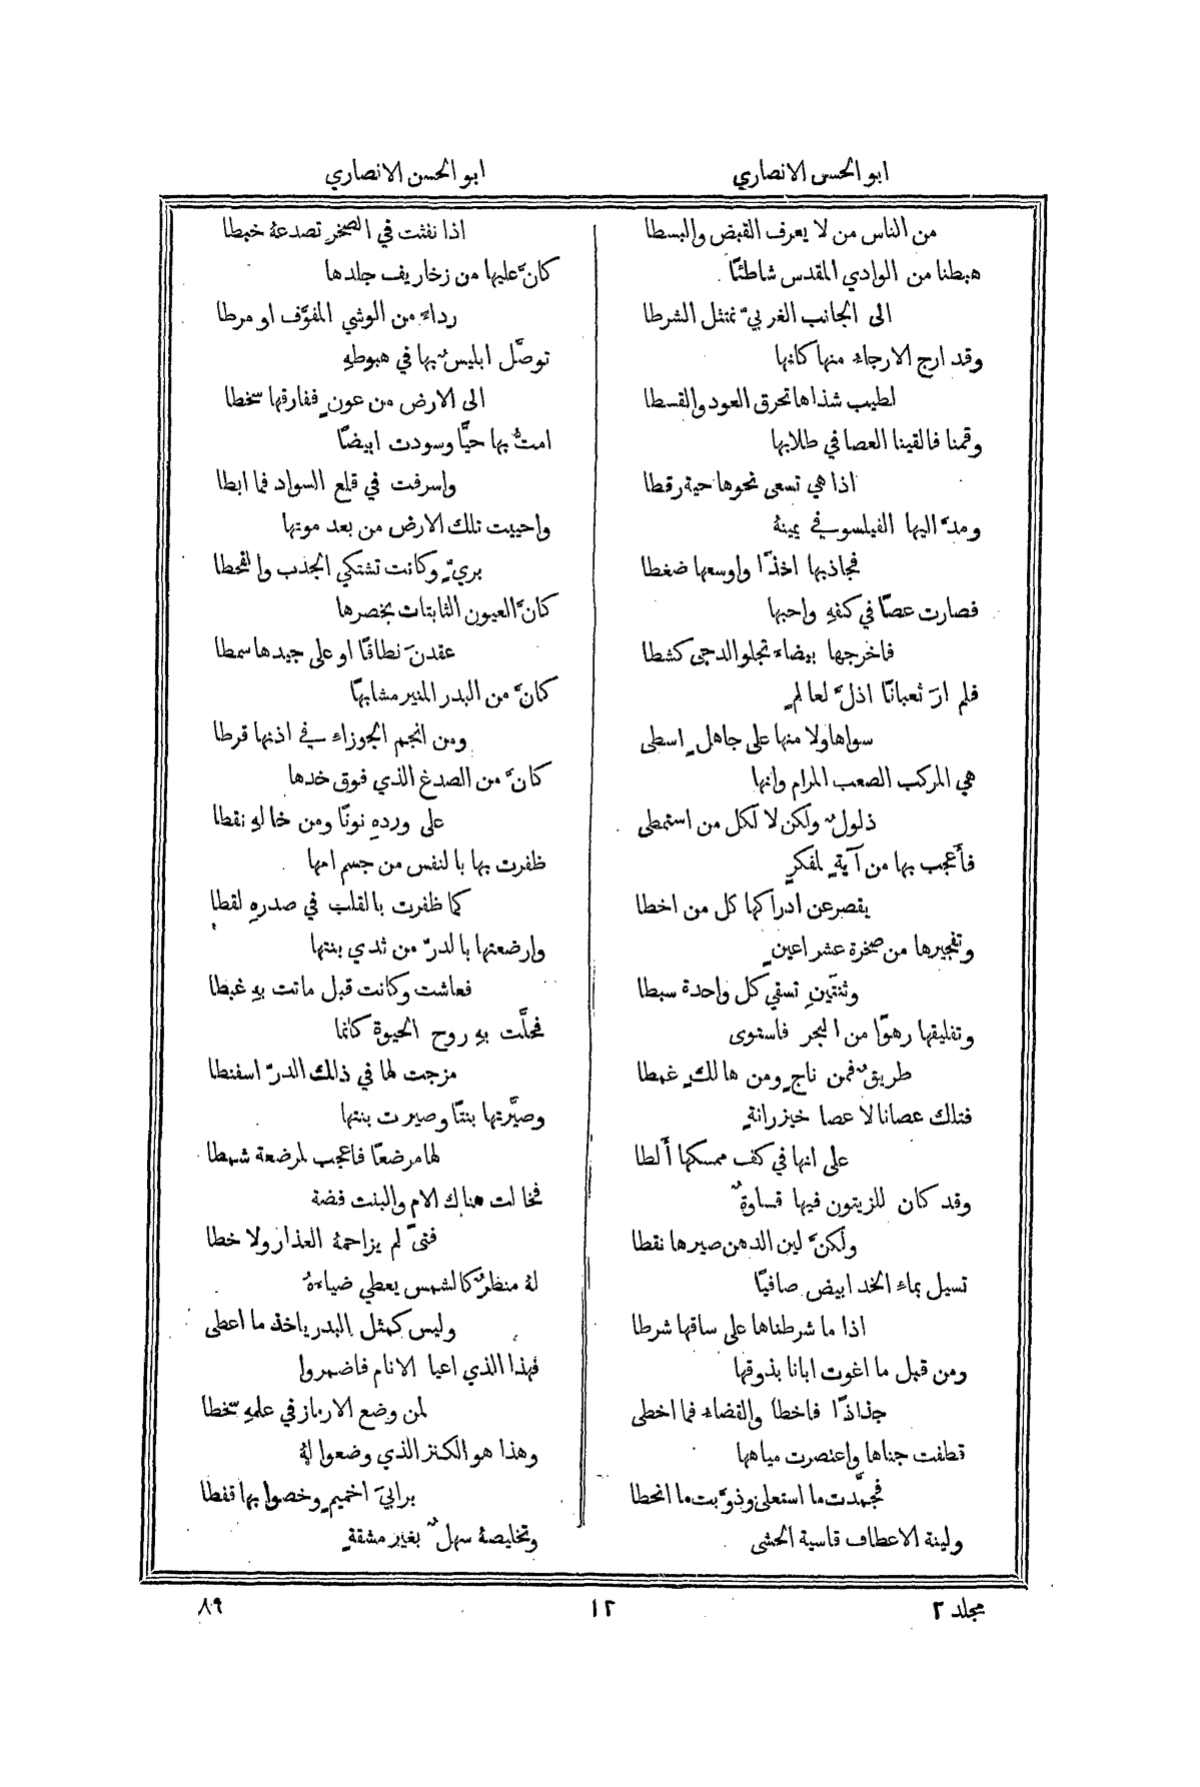 ابو الحسن الانصاري
ابو الحسن الانصاري
من الناس من لا يعرف القبض والبسطا
هبطنا من الوادي المقدس شاطئًا
الى الجانب الغربيّ نمتثل الشرطا
وقد ارج الارجاء منها كانها
لطيب شذاها تحرق العود والقسطا
وقمنا فالقينا العصا في طلابها
اذا هي تسعى نحوها حية رقطا
ومدّ اليها الفيلسوف يمينهُ
فجاذبها اخذًا واوسعها ضغطا
فصارت عصًا في كفهِ واحبها
فاخرجها بيضاء تجلو الدجى كشطا
فلم ارَ ثعبانًا اذلَّ لعالمٍ
سواها ولا منها على جاهلٍ اسطى
هي المركب الصعب المرام وانها
ذلولٌ ولكن لا لكل من استمطى
فأعجب بها من آيةٍ لمفكرٍ
يقصر عن ادراكها كل من اخطا
وتفجيرها من صخرة عشر اعينٍ
وثنتَينِ تسقي كل واحدة سبطا
وتفليقها رهوًا من البحر فاستوى
طريقٌ فمن ناجٍ ومن هالكٍ غمطا
فتلك عصانا لا عصا خيزرانةٍ
على انها في كف ممسكها ألطا
وقد كان للزيتون فيها قساوةٌ
ولكنَّ لين الدهن صيرها نقطا
تسيل بماء الخد ابيض صافيًا
اذا ما شرطناها على ساقها شرطا
ومن قبل ما اغوت ابانا بذوقها
جذاذًا فاخطا والقضاء فما اخطى
قطفت جناها واعتصرت مياهها
فجمَّدت ما استعلى وذوَّبت ما انحطا
ولينة الاعطاف قاسية الحشى
اذا نفثت في الصخرِ تصدعهُ خبطا
كانَّ عليها من زخاريف جلدها
رداءً من الوشي المفوَّف او مرطا
توصَّل ابليسٌ بها في هبوطهِ
الى الارض من عونٍ ففارقها سخطا
امتُّ بها حيًّا وسودت ابيضًا
واسرفت في قلع السواد فما ابطا
واحييت تلك الارض من بعد موتها
بريٍّ وكانت تشتكي الجذب والقحطا
كانَّ العيون الثابتات بخصرها
عقدنَ نطاقًا او على جيدها سمطا
كانَّ من البدر المنير مشابهًا
ومن انجم الجوزاء في اذنها قرطا
كانَّ من الصدغ الذي فوق خدها
على وردهِ نونًا ومن خالهِ نقطا
ظفرت بها بالنفس من جسم امها
كما ظفرت بالقلب في صدرهِ لقطا
وارضعتها بالدرّ من ثدي بنتها
فعاشت وكانت قبل ماتت بهِ غبطا
فحلَّت بهِ روح الحيوة كانما
مزجت لها في ذلك الدرّ اسفنطا
وصيَّرتها بنتًا وصيرت بنتها
لها مرضعًا فاعجب لمرضعة شمطا
فخالت هناك الام والبنت فضة
فتىً لم يزاحمهُ العذار ولا خطا
لهُ منظرٌ كالشمس يعطي ضياءهُ
وليس كمثل البدر ياخذ ما اعطى
فهذا الذي اعيا الانام فاضمروا
لمن وضع الارماز في علمهِ سخطا
وهذا هو الكنز الذي وضعوا لهُ
برابيَ اخميمٍ وخصوا بها قفطا
وتخليصهُ سهلٌ بغير مشقةٍ
مجلد ٢
١٢
٨٩